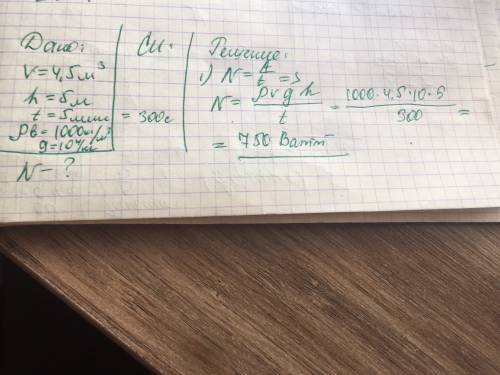 Дано:
V=4,5м³
h=5м
t=5мин
ρв=1000кг/м³
g=10Н/кг
N-?
Си.
=300с
Решение:
1) N=A/t=>
N=ρVgh/t=1000·4,5·10·5/300=
=750 Ватт